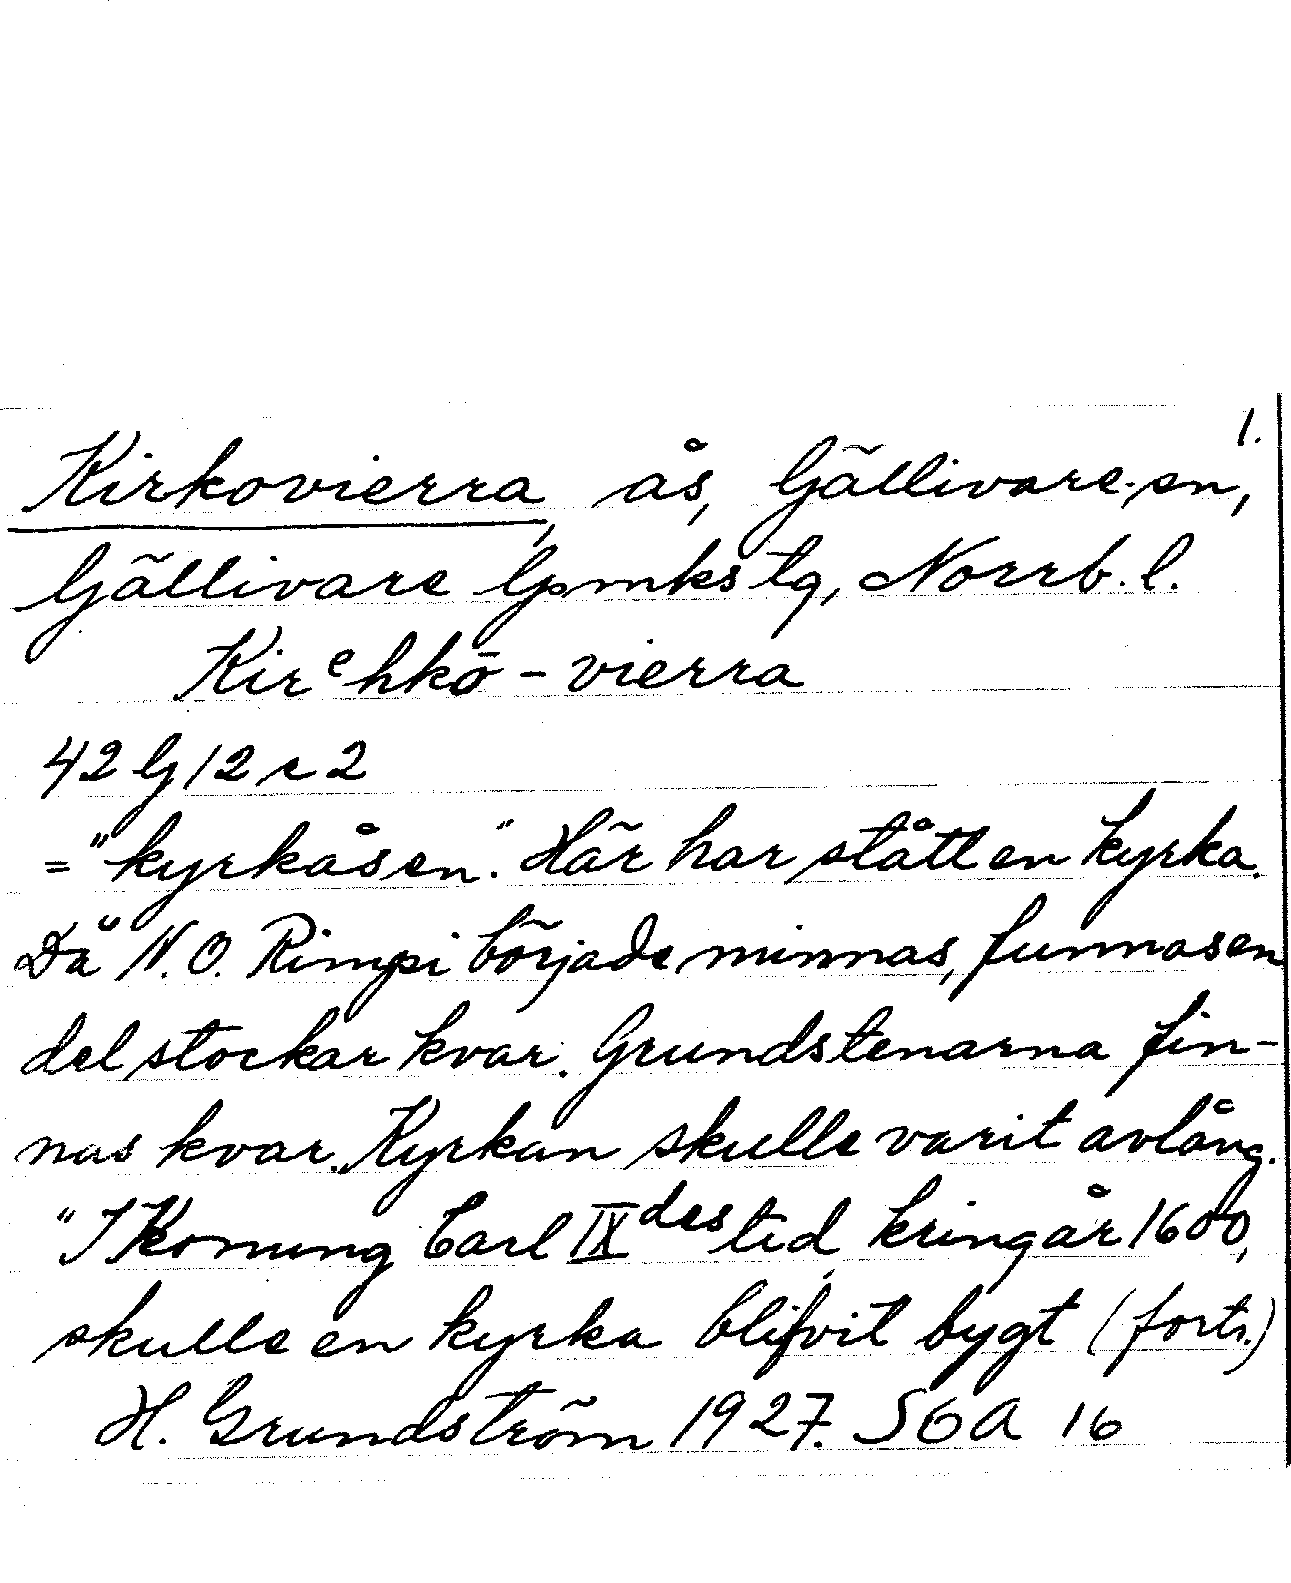 1.
Kirkovierra, ås, Gällivare sn,
Gällivare lpmks tg, Norrb. l.
Kirᵉhkō - vierra
42 G 12 c 2
= "kyrkåsen." Här har stått en kyrka.
Då N. O. Rimpi började minnas, funnas en
del stockar kvar. Grundstenarna fin-
nas kvar. Kyrkan skulle varit avlång.
"I Konung Carl IXdes tid, kring år 1600,
skulle en kyrka blifvit bygt (forts.)
H. Grundström 1927. SGA 16